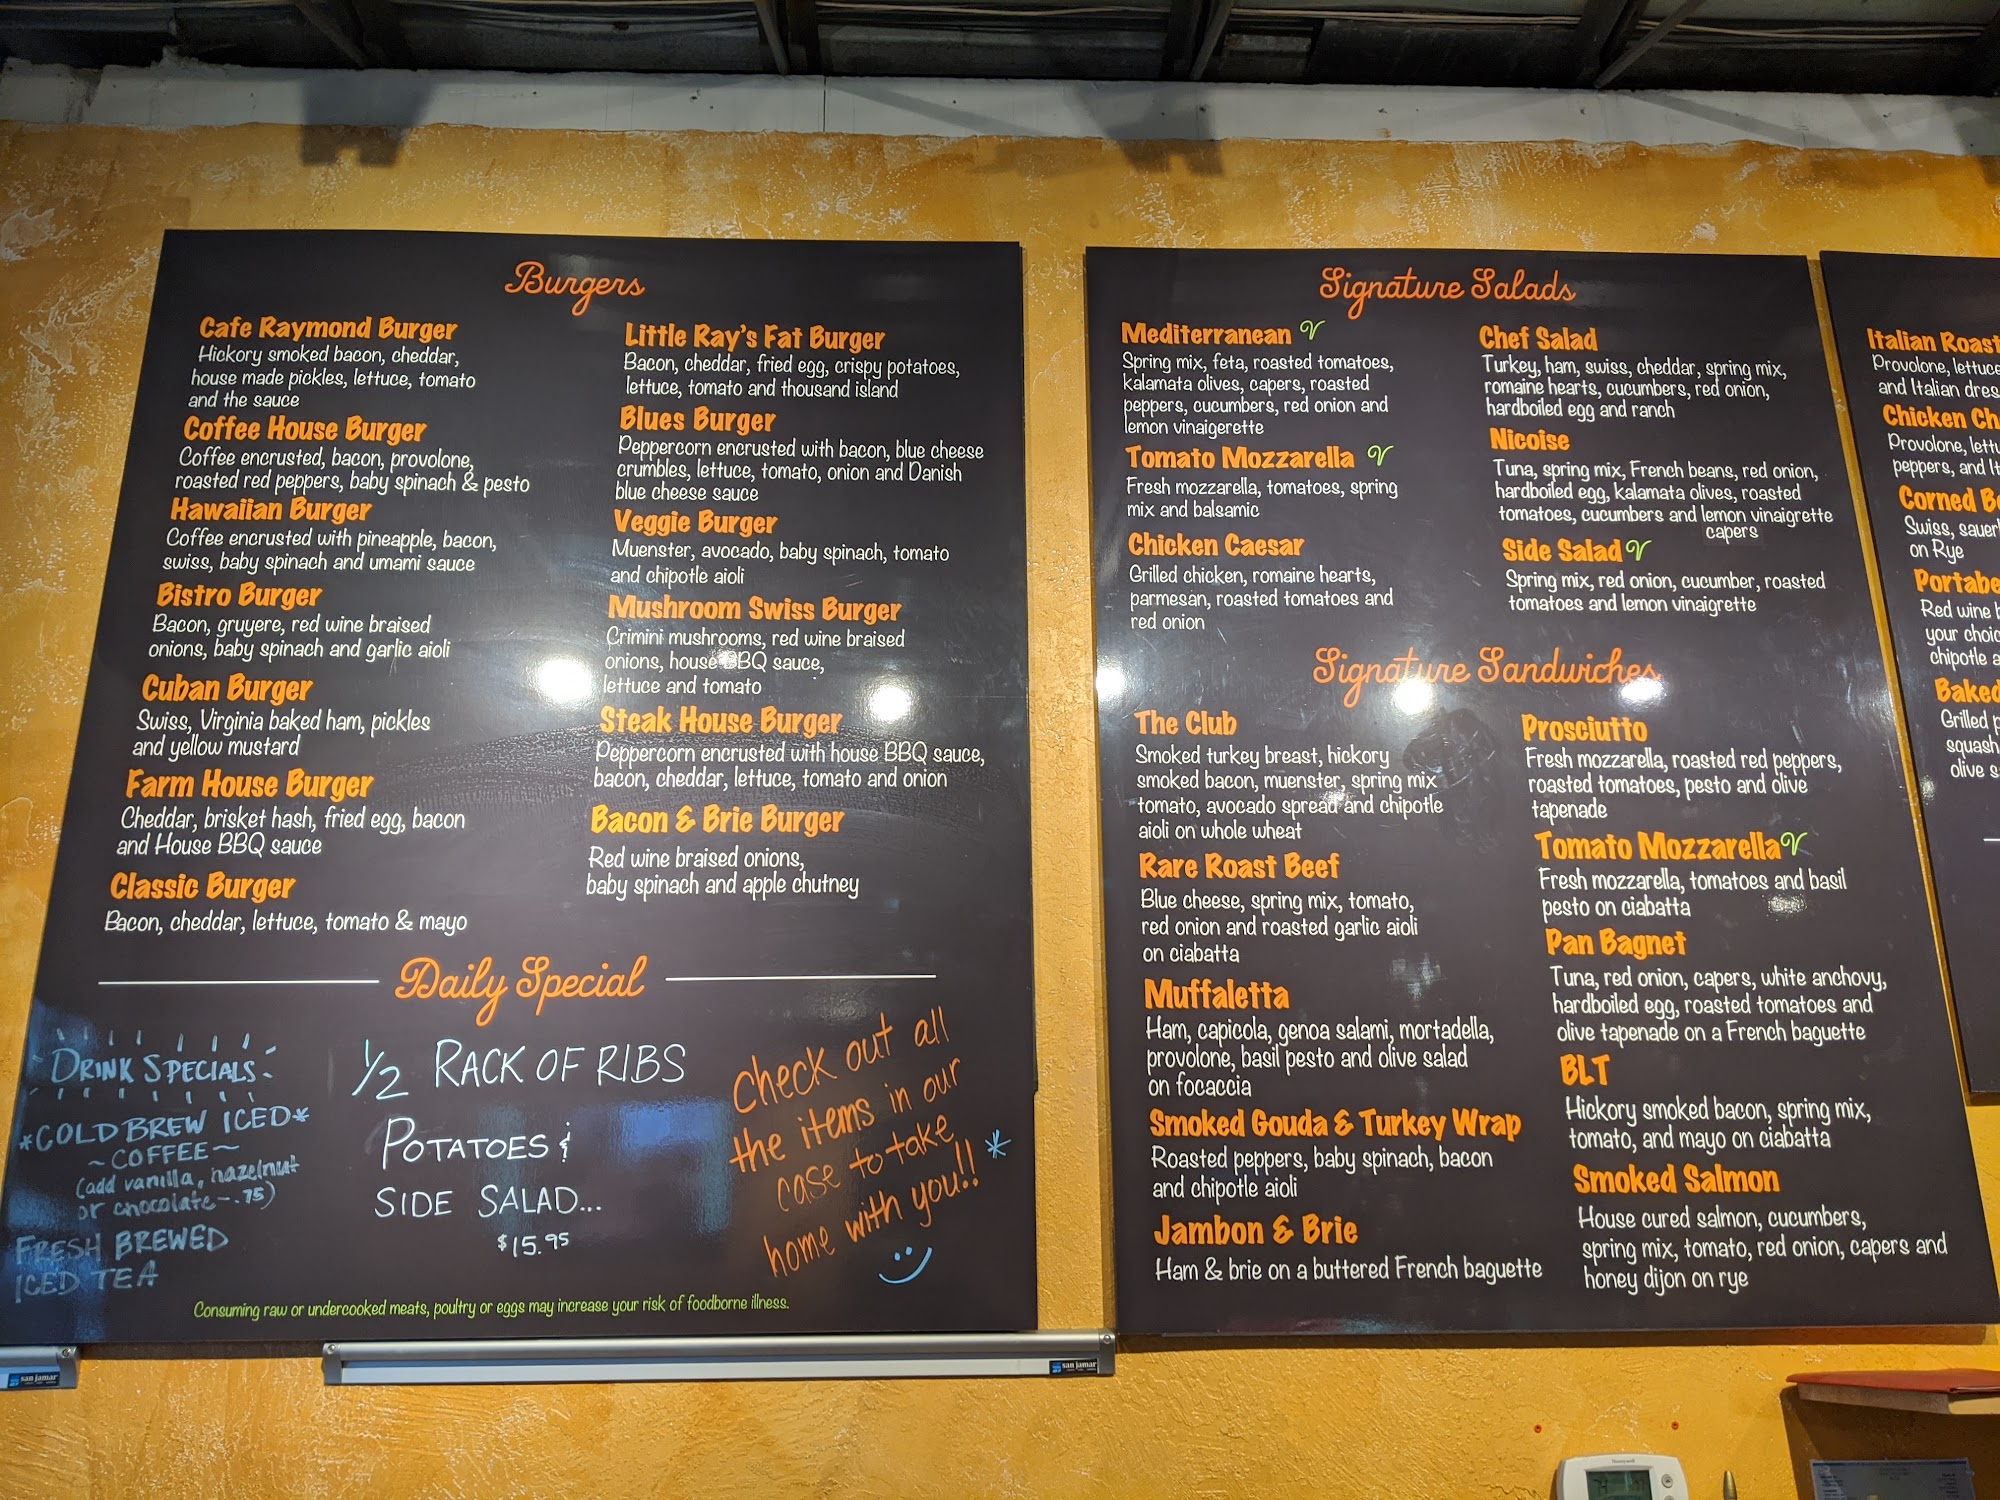 Burgers
Cafe Raymond Burger
Hickory smoked bacon, cheddar,
house made pickles, lettuce, tomato
and the sauce
Coffee House Burger
Coffee encrusted, bacon, provolone,
roasted red peppers, baby spinach & pesto
Hawaiian Burger
Coffee encrusted with pineapple, bacon,
swiss, baby spinach and umami sauce
Bistro Burger
Bacon, gruyere, red wine braised
onions, baby spinach and garlic aioli
Cuban Burger
Swiss, Virginia baked ham, pickles
and yellow mustard
Farm House Burger
Cheddar, brisket hash, fried egg, bacon
and House BBQ sauce
Classic Burger
Bacon, cheddar, lettuce, tomato & mayo
Little Ray's Fat Burger
Bacon, cheddar, fried egg, crispy potatoes,
lettuce, tomato and thousand island
Blues Burger
Peppercorn encrusted with bacon, blue cheese
crumbles, lettuce, tomato, onion and Danish
blue cheese sauce
Veggie Burger
Muenster, avocado, baby spinach, tomato
and chipotle aioli
Mushroom Swiss Burger
Crimini mushrooms, red wine braised
onions, house BBQ sauce,
lettuce and tomato
Steak House Burger
Peppercorn encrusted with house BBQ sauce,
bacon, cheddar, lettuce, tomato and onion
Bacon & Brie Burger
Red wine braised onions,
baby spinach and apple chutney
Daily Special
DRINK SPECIALS
*COLD BREW ICED*
~COFFEE~
(add vanilla, hazelnut
or chocolate - .75)
FRESH BREWED
ICED TEA
1/2 RACK OF RIBS
POTATOES &
SIDE SALAD...
$15.95
Check out all
the items in our
case to take
home with you!! *
Consuming raw or undercooked meats, poultry or eggs may increase your risk of foodborne illness.
san jamar
san jamar
Signature Salads
Mediterranean V
Spring mix, feta, roasted tomatoes,
kalamata olives, capers, roasted
peppers, cucumbers, red onion and
lemon vinaigerette
Tomato Mozzarella V
Fresh mozzarella, tomatoes, spring
mix and balsamic
Chicken Caesar
Grilled chicken, romaine hearts,
parmesan, roasted tomatoes and
red onion
Chef Salad
Turkey, ham, swiss, cheddar, spring mix,
romaine hearts, cucumbers, red onion,
hardboiled egg and ranch
Nicoise
Tuna, spring mix, French beans, red onion,
hardboiled egg, kalamata olives, roasted
tomatoes, cucumbers and lemon vinaigrette
capers
Side Salad V
Spring mix, red onion, cucumber, roasted
tomatoes and lemon vinaigrette
Signature Sandwiches
The Club
Smoked turkey breast, hickory
smoked bacon, muenster, spring mix
tomato, avocado spread and chipotle
aioli on whole wheat
Rare Roast Beef
Blue cheese, spring mix, tomato,
red onion and roasted garlic aioli
on ciabatta
Muffaletta
Ham, capicola, genoa salami, mortadella,
provolone, basil pesto and olive salad
on focaccia
Smoked Gouda & Turkey Wrap
Roasted peppers, baby spinach, bacon
and chipotle aioli
Jambon & Brie
Ham & brie on a buttered French baguette
Prosciutto
Fresh mozzarella, roasted red peppers,
roasted tomatoes, pesto and olive
tapenade
Tomato Mozzarella V
Fresh mozzarella, tomatoes and basil
pesto on ciabatta
Pan Bagnet
Tuna, red onion, capers, white anchovy,
hardboiled egg, roasted tomatoes and
olive tapenade on a French baguette
BLT
Hickory smoked bacon, spring mix,
tomato, and mayo on ciabatta
Smoked Salmon
House cured salmon, cucumbers,
spring mix, tomato, red onion, capers and
honey dijon on rye
Italian Roast
Provolone, lettuce
and Italian dres
Chicken Ch
Provolone, lettu
peppers, and It
Corned Be
Swiss, sauer
on Rye
Portabe
Red wine b
your choic
chipotle a
Baked
Grilled p
squash
olive s
Honeywell